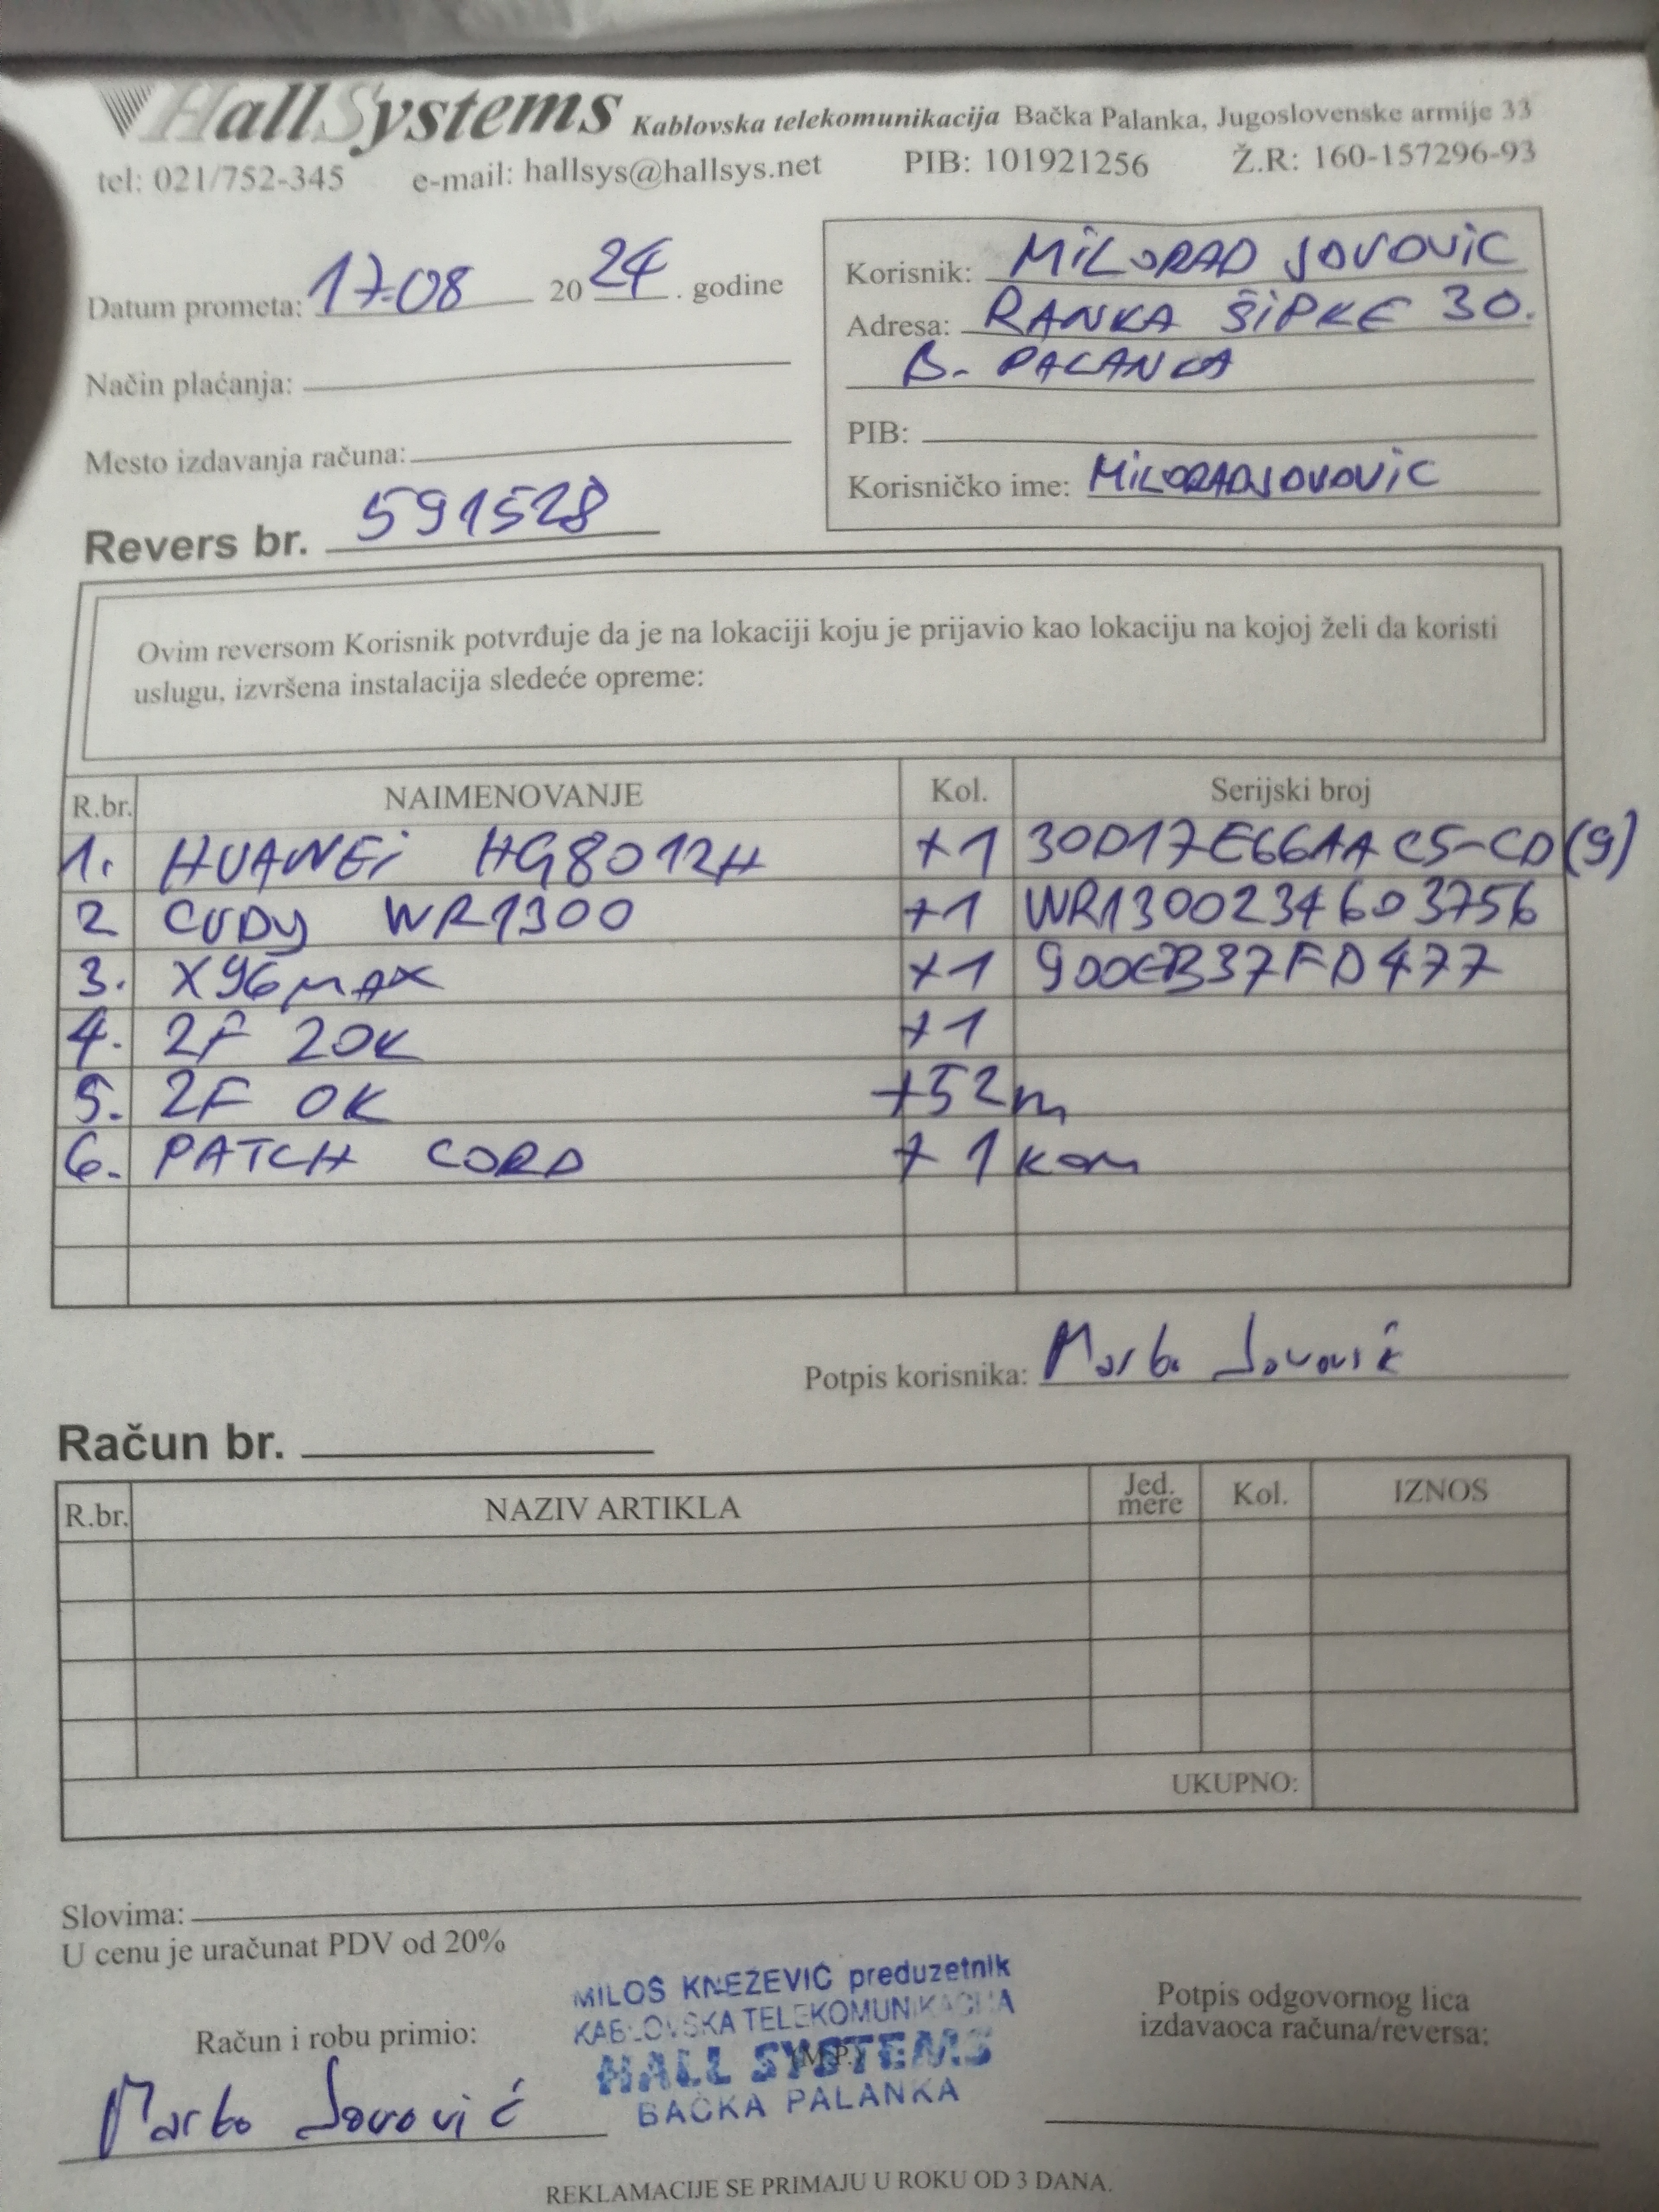 HallSystems Kablovska telekomunikacija Bačka Palanka, Jugoslovenske armije 33
tel: 021/752-345 e-mail: hallsys@hallsys.net PIB: 101921256 Ž.R: 160-157296-93
Datum prometa: 17.08 2024. godine
Način plaćanja:
Mesto izdavanja računa:
Revers br. 591528
Korisnik: MILORAD JOVOVIC
Adresa: RANKA ŠIPKE 30.
B. PALANKA
PIB:
Korisničko ime: MILORADJOVOVIC
Ovim reversom Korisnik potvrđuje da je na lokaciji koju je prijavio kao lokaciju na kojoj želi da koristi
uslugu, izvršena instalacija sledeće opreme:
R.br. NAIMENOVANJE Kol. Serijski broj
1. HUAWEi HG8012H +1 30D17E66AAC5-CD(9)
2 CUDY WR1300 +1 WR1300234603756
3. X96MAX +1 900EB37FD477
4. 2F 20K +1
5. 2F OK +52m
6. PATCH CORD +1 kom
Potpis korisnika: Marko Jovović
Račun br.
R.br. NAZIV ARTIKLA Jed. mere Kol. IZNOS
UKUPNO:
Slovima:
U cenu je uračunat PDV od 20%
MILOŠ KNEŽEVIĆ preduzetnik
KABLOVSKA TELEKOMUNIKACIJA
HALL SYSTEMS
(M.P.)
BAČKA PALANKA
Račun i robu primio:
Marko Jovović
Potpis odgovornog lica
izdavaoca računa/reversa:
REKLAMACIJE SE PRIMAJU U ROKU OD 3 DANA.